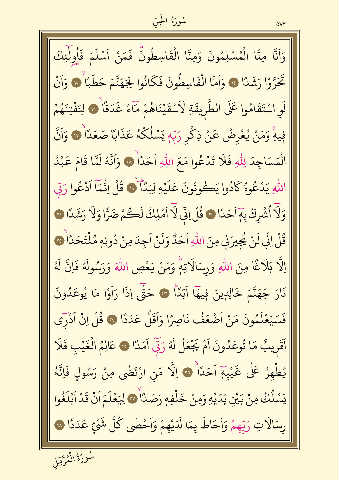 سُورَةُ الْجِنِّ ٥٧٢
وَاَنَّا مِنَّا الْمُسْلِمُونَ وَمِنَّا الْقَاسِطُونَۜ فَمَنْ اَسْلَمَ فَاُو۬لٰٓئِكَ
تَحَرَّوْا رَشَدًا ﴿١٤﴾ وَاَمَّا الْقَاسِطُونَ فَكَانُوا لِجَهَنَّمَ حَطَبًاۙ ﴿١٥﴾ وَاَنْ
لَوِ اسْتَقَامُوا عَلَى الطَّر۪يقَةِ لَاَسْقَيْنَاهُمْ مَٓاءً غَدَقًاۙ ﴿١٦﴾ لِنَفْتِنَهُمْ
ف۪يهِۜ وَمَنْ يُعْرِضْ عَنْ ذِكْرِ رَبِّه۪ يَسْلُكْهُ عَذَابًا صَعَدًاۙ ﴿١٧﴾ وَاَنَّ
الْمَسَاجِدَ لِلّٰهِ فَلَا تَدْعُوا مَعَ اللّٰهِ اَحَدًاۙ ﴿١٨﴾ وَاَنَّهُ لَمَّا قَامَ عَبْدُ
اللّٰهِ يَدْعُوهُ كَادُوا يَكُونُونَ عَلَيْهِ لِبَدًاۜ ﴿١٩﴾ قُلْ اِنَّمَٓا اَدْعُوا رَبّ۪ي
وَلَٓا اُشْرِكُ بِه۪ٓ اَحَدًا ﴿٢٠﴾ قُلْ اِنّ۪ي لَٓا اَمْلِكُ لَكُمْ ضَرًّا وَلَا رَشَدًا ﴿٢١﴾
قُلْ اِنّ۪ي لَنْ يُج۪يرَن۪ي مِنَ اللّٰهِ اَحَدٌ وَلَنْ اَجِدَ مِنْ دُونِه۪ مُلْتَحَدًاۙ ﴿٢٢﴾
اِلَّا بَلَاغًا مِنَ اللّٰهِ وَرِسَالَاتِه۪ۜ وَمَنْ يَعْصِ اللّٰهَ وَرَسُولَهُ فَاِنَّ لَهُ
نَارَ جَهَنَّمَ خَالِد۪ينَ ف۪يهَٓا اَبَدًاۜ ﴿٢٣﴾ حَتّٰٓى اِذَا رَاَوْا مَا يُوعَدُونَ
فَسَيَعْلَمُونَ مَنْ اَضْعَفُ نَاصِرًا وَاَقَلُّ عَدَدًا ﴿٢٤﴾ قُلْ اِنْ اَدْر۪ٓي
اَقَر۪يبٌ مَا تُوعَدُونَ اَمْ يَجْعَلُ لَهُ رَبّ۪ٓي اَمَدًا ﴿٢٥﴾ عَالِمُ الْغَيْبِ فَلَا
يُظْهِرُ عَلٰى غَيْبِه۪ٓ اَحَدًاۙ ﴿٢٦﴾ اِلَّا مَنِ ارْتَضٰى مِنْ رَسُولٍ فَاِنَّهُ
يَسْلُكُ مِنْ بَيْنِ يَدَيْهِ وَمِنْ خَلْفِه۪ رَصَدًاۙ ﴿٢٧﴾ لِيَعْلَمَ اَنْ قَدْ اَبْلَغُوا
رِسَالَاتِ رَبِّهِمْ وَاَحَاطَ بِمَا لَدَيْهِمْ وَاَحْصٰى كُلَّ شَيْءٍ عَدَدًا ﴿٢٨﴾
سُورَةُ الْمُزَّمِّلِ